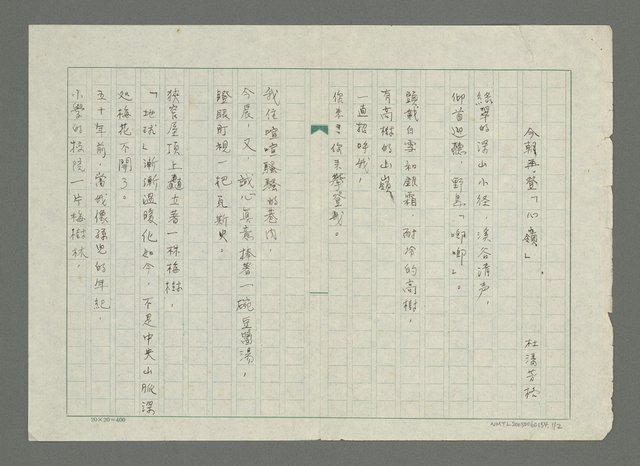 今朝再登「心嶺」。
杜潘芳格
綠翠的深山小徑，溪谷清声，
仰首迎聽，野鳥「啣啣」。
頭戴白雪和銀霜，耐冷的高樹，
有高樹的山嶺
一直招呼我，
你来呀你来攀登我。
我住喧喧騷騷的巷內，
今晨，又，誠心真意捧着一碗豆醬湯，
瞪眼盯視一把瓦斯火。
狹窄屋頂上矗立著一株梅樹，
「地球」漸漸溫暖化如今，不是中央山脈深
处梅花不開了。
五十年前，當我像孫兒的年紀，
小學的校院一片梅樹林，
20×20=400
NMTL20050060154 1/2